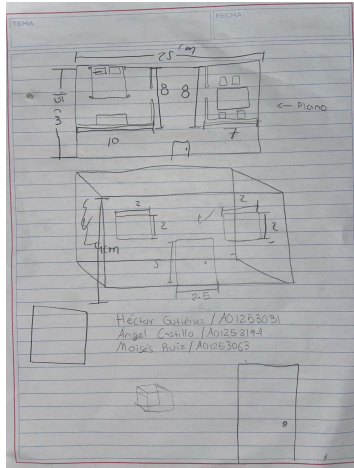 TEMA
FECHA
25 cm
15 cm
8 8
← Plano
10
7
2
2
2
2
cm
5
2.5
Héctor Gutiérrez / A01253031
Angel Castillo / A01253194
Moisés Ruiz / A01253063